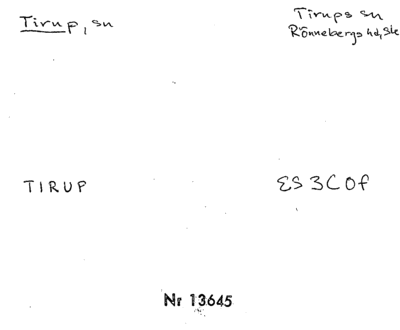 Tirup, sn
Tirups sn
Rönnebergs hd, Sk
TIRUP
ES 3C0f
Nr 13645